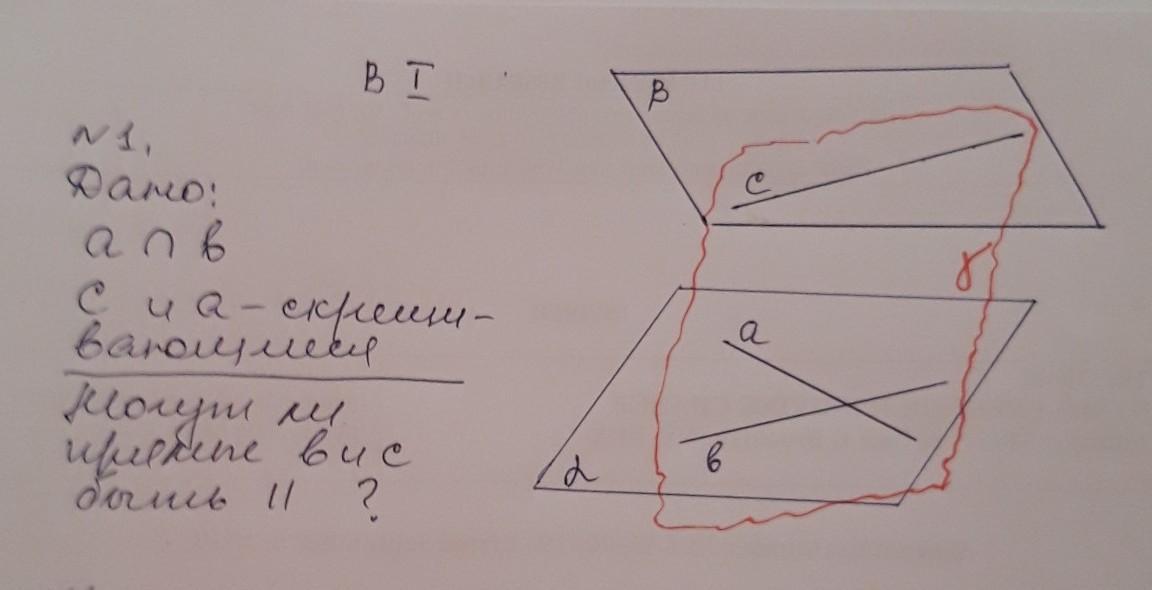 В I
№1.
Дано:
a ∩ в
c и a - скрещи-
вающиеся
Могут ли
прямые в и c
быть || ?
β
c
γ
a
в
α